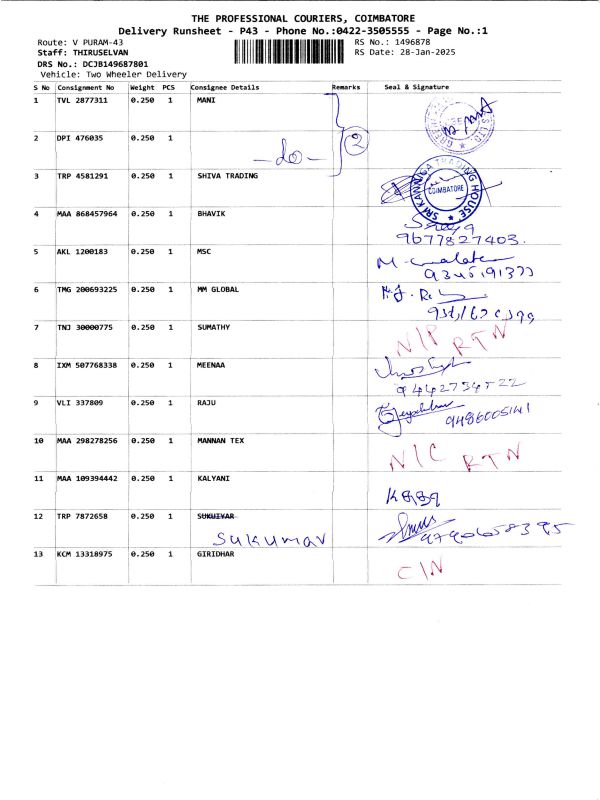 THE PROFESSIONAL COURIERS, COIMBATORE
Delivery Runsheet - P43 - Phone No.:0422-3505555 - Page No.:1
Route: V PURAM-43 RS No.: 1496878
Staff: THIRUSELVAN RS Date: 28-Jan-2025
DRS No.: DCJB149687801
Vehicle: Two Wheeler Delivery
S No Consignment No Weight PCS Consignee Details Remarks Seal & Signature
1 TVL 2877311 0.250 1 MANI
2 DPI 476035 0.250 1 -do- 2
3 TRP 4581291 0.250 1 SHIVA TRADING SRI KANNIGA TRADING HOUSE COIMBATORE
4 MAA 868457964 0.250 1 BHAVIK
9677827403.
5 AKL 1200183 0.250 1 MSC
6 TMG 200693225 0.250 1 MM GLOBAL
7 TNJ 30000775 0.250 1 SUMATHY N/P RTN
8 IXM 507768338 0.250 1 MEENAA
9442734522
9 VLI 337809 0.250 1 RAJU 9486005141
10 MAA 298278256 0.250 1 MANNAN TEX N/C RTN
11 MAA 109394442 0.250 1 KALYANI
12 TRP 7872658 0.250 1 SUKUIYAR
Sukumar
13 KCM 13318975 0.250 1 GIRIDHAR C/N